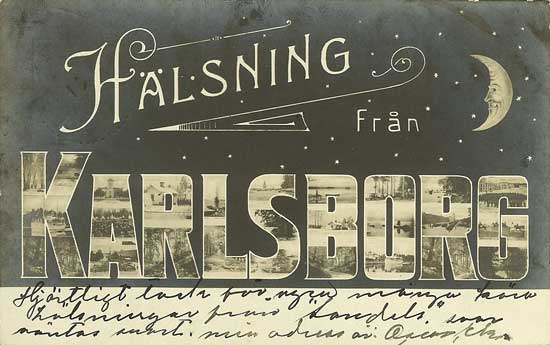 HÄLSNING
från
KARLSBORG
Hjärtligt tack för många kära
hälsningar från "Sandels", svar
väntas snart. min adress är.